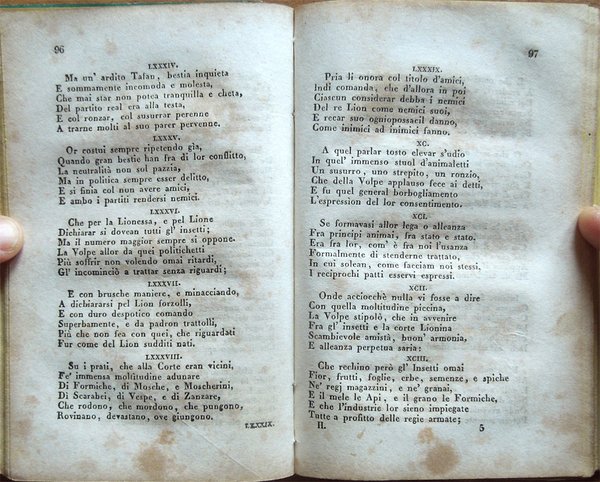 96
LXXXIV.
Ma un' ardito Tafan, bestia inquieta
E sommamente incomoda e molesta,
Che mai star non potea tranquilla e cheta,
Del partito real era alla testa,
E col ronzar, col susurrar perenne
A trarne molti al suo parer pervenne.
LXXXV.
Or costui sempre ripetendo gía,
Quando gran bestie han fra di lor conflitto,
La neutralità non sul pazzia,
Ma in politica sempre esser delitto,
E sì finia col non avere amici,
E ambo i partiti rendersi nemici.
LXXXVI.
Che per la Lionessa, e pel Lione
Dichiarar si dovean tutti gl' insetti;
Ma il numero maggior sempre si oppone.
La Volpe allor da quei politichetti
Più soffrir non volendo omai ritardi,
Gl' incominciò a trattar senza riguardi;
LXXXVII.
E con brusche maniere, e minacciando,
A dichiararsi pel Lion forzolli,
E con duro despotico comando
Superbamente, e da padron trattolli,
Più che non fea con quei, che riguardati
Fur come del Lion sudditi nati.
LXXXVIII.
Su i prati, che alla Corte eran vicini,
Fe' immensa moltitudine adunare
Di Formiche, di Mosche, e Moscherini,
Di Scarabei, di Vespe, e di Zanzare,
Che rodono, che mordono, che pungono,
Rovinano, devastano, ove giungono.
LXXXIX.
97
LXXXIX.
Pria li onora col titolo d'amici,
Indi comanda, che d'allora in poi
Ciascun considerar debba i nemici
Del re Lion come nemici suoi,
E recar suo ogniopossacil danno,
Come inimici ad inimici fanno.
XC.
A quel parlar tosto elevar s'udio
In quel' immenso stuol d'animaletti
Un susurro, uno strepito, un ronzio,
Che della Volpe applauso fece ai detti,
E fu quel general borbogliamento
L'espression del lor consentimento.
XCI.
Se formavasi allor lega o alleanza
Fra principi animai, fra stato e stato.
Era fra lor, com' è fra noi l'usanza
Formalmente di stenderne trattato,
In cui solean, come facciam noi stessi,
I reciprochi patti esservi espressi.
XCII.
Onde acciocchè nulla vi fosse a dire
Con quella moltitudine piccina,
La Volpe stipolò, che in avvenire
Fra gl' insetti e la corte Lionina
Scambievole amistà, buon' armonia,
E alleanza perpetua saria:
XCIII.
Che rechino però gl' Insetti omai
Fior, frutti, foglie, erbe, semenze, e spiche
Ne' regj magazzini, e ne' granai,
E il mele le Api, e il grano le Formiche,
E che l'industrie lor sieno impiegate
Tutte a profitto delle regie armate;
II. 5